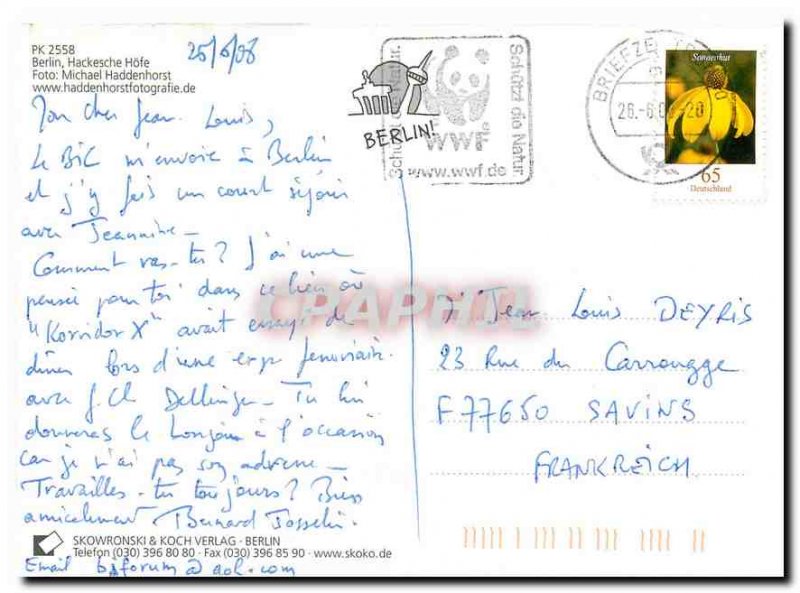 PK 2558
Berlin, Hackesche Höfe
Foto: Michael Haddenhorst
www.haddenhorstfotografie.de
25/6/08
Mon cher Jean-Louis,
Le BIC m'envoie à Berlin
et j'y fais un court séjour
avec Jeannine -
Comment vas-tu? J'ai une
pensée pour toi dans ce lieu où
"Korridor X" avait essayé de
dîner lors d'une exp ferroviaire
avec J. Ch. Dellinger - Tu lui
donneras le bonjour à l'occasion
car je n'ai pas son adresse -
Travailles-tu toujours? Bien
amicalement Bernard Josselin.
SKOWRONSKI & KOCH VERLAG · BERLIN
Telefon (030) 396 80 80 · Fax (030) 396 85 90 · www.skoko.de
Email bjforum@aol.com
BERLIN!
Schützt die Natur.
WWF
Schützt die Natur.
www.wwf.de
BRIEFZE
26.-6.0 -20
Sonnenhut
65
Deutschland
CPAPHIL
Mr Jean Louis DEYRIS
23 Rue du Carrougge
F77650 SAVINS
FRANKREICH